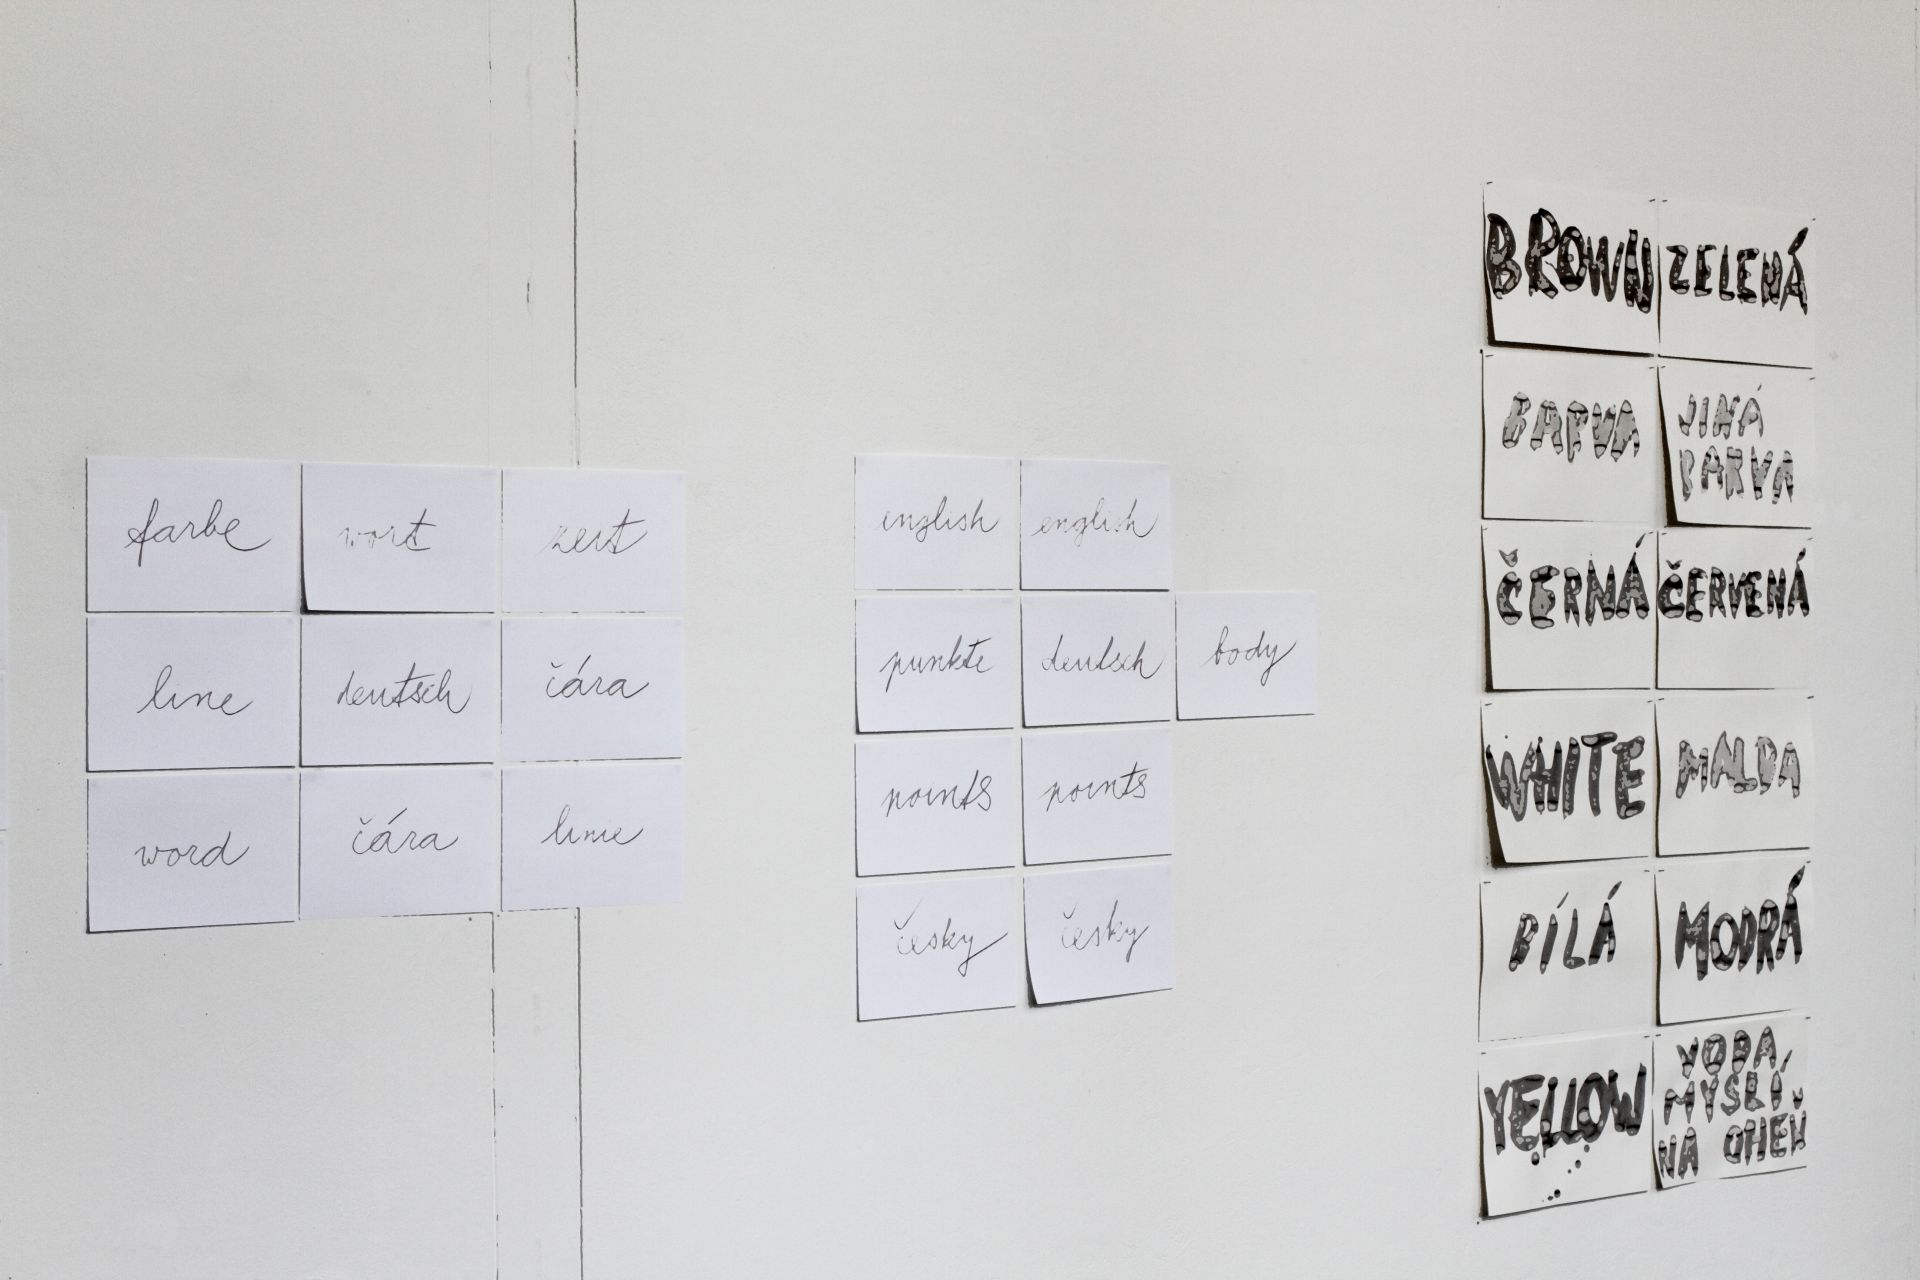 farbe wort zeit
line deutsch čára
word čára line
english english
punkte deutsch body
points points
česky česky
BROWN ZELENÁ
BARVA JINÁ
BARVA
ČERNÁ ČERVENÁ
WHITE MALBA
BÍLÁ MODRÁ
YELLOW VODA,
MYSLÍ,
NA OHEŇ